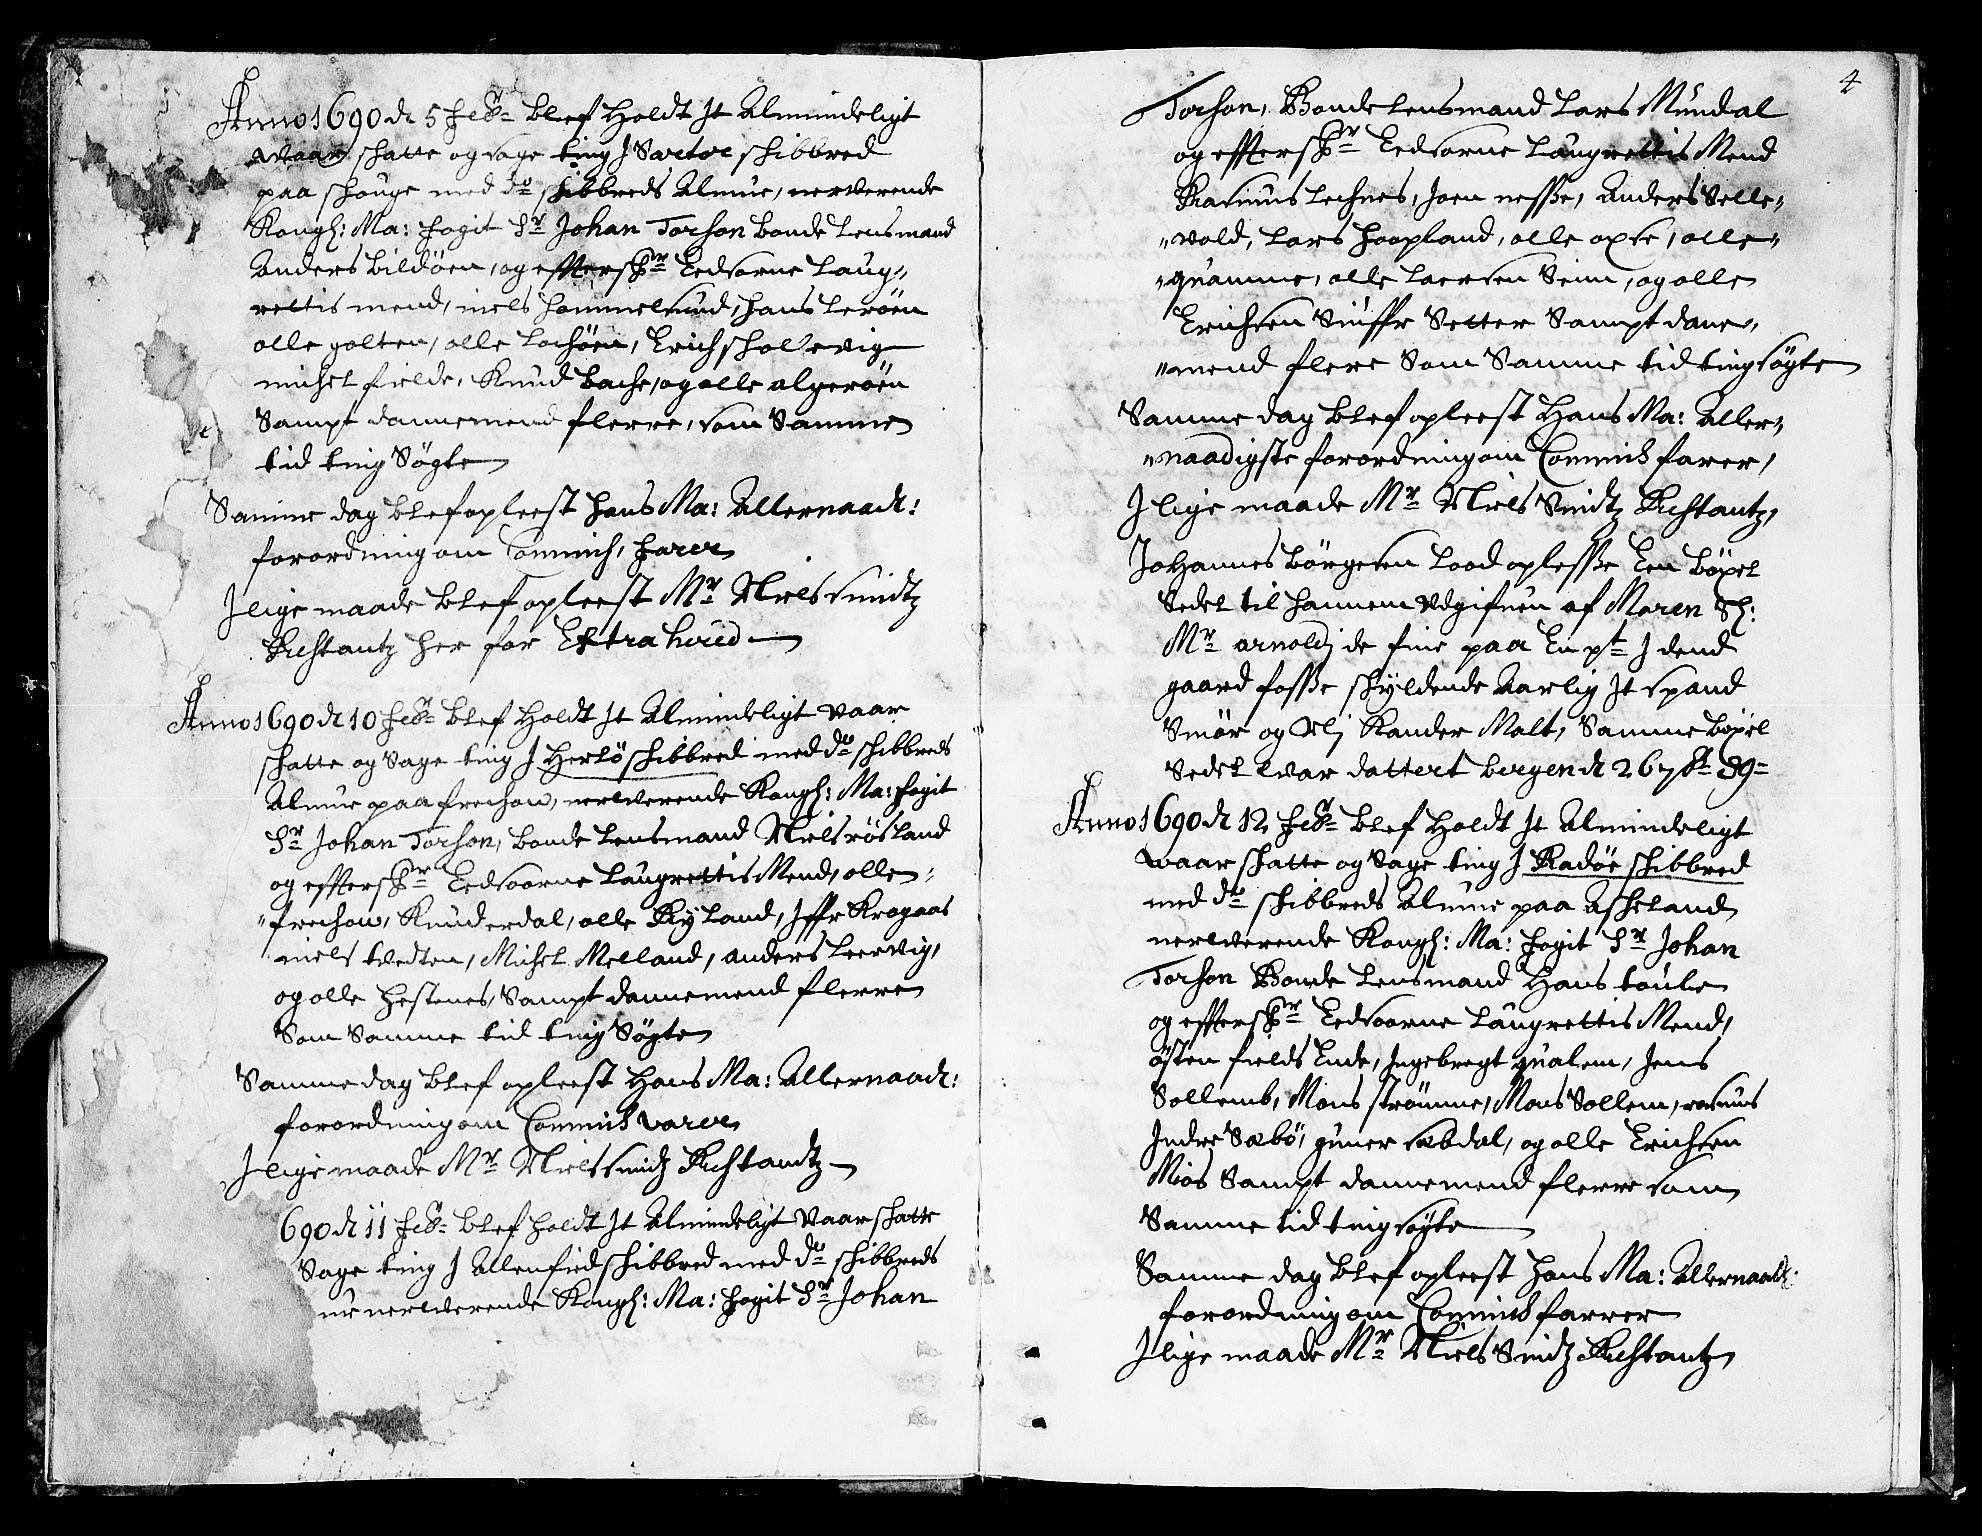 Anno 1690 dn 5 febr: blef holdt It Almindeligt
Waar schatte og sage ting J Sartor schibbred
paa schouge med do schibbreds Almue, nerverende
Kongl: Ma: fogit Sr Johan Torson bonde lensmand
Anders bildöen, og effterschr: Eedsorne laug¬
rettis mend, niels hommelsund, hans leröen
olle golten, olle lochöen, Erich schallevig
michel fielde, Knud bache, og olle algeröen
Sampt dannemend flerre, som Samme
tid ting Sögte
Samme dag blef opleest hans Ma: Allernaadi:
forordning om Commis, farer
J lige maade blef opleest Mr Niels smidtz
Restantz her for Extra hued
Anno 1690 dn 10 febr: blef holdt It Almindeligt Vaar
schatte og Sage ting J Herlö schibbred med do schibbreds
Almue paa frechou, nerwerende Kongl: Ma: fogit
Sr Johan Torson, bonde lensmand Niels rösland
og effterschr: Eedsoorne laugrettis Mend, olle
frechou, Knud erdal, olle Ryland, Iffr Krogaas
niels tvedten, Michel Melland, anders leervig,
og olle hestenes, Sampt dannemend flerre
Som Samme tid ting Sögte
Samme dag blef opleest hans Ma: Allernaadi:
forordning om Commis varer
J lige maade Mr Niels smidtz Restandtz
690 dn 11 febr: blef holdt It Almindeligt Vaar schatte
Sage ting J Allenfird schibbred med do schibbreds
ue nerwerende Kongl: Ma: fogit Sr Johan
4
Torson, Bonde lensmand lars Mundal
og effterschr: Eedsorne laugrettis Mend
Rasmus lechnes, Joen nesse, Anders Selle¬
vold, lars hoopland, olle opse, olle
quamme, olle laersen Seim, og olle
Erichsen Siuffr Setter Sampt dane¬
mend flere Som Samme tid ting sögte
Samme dag blef opleest Hans Ma: Aller¬
naadigste forordning om Commis farer,
J lige maade Mr Niels Smidtz Restantz,
Johannes börgesen lood oplesse Een böxel
Sedel til hannem Udgifuen af Maren Sl:
Mr arnoldj de fine paa En pt J dend
gaard fosse schyldende Aarlig It spand
Smör og Kander Malt, Samme böxel
Sedel war dattert bergen dn 26 89
Anno 1690 dn 12 febr: blef holdt It Almindeligt
waar schatte og Sage ting J Radöe schibbred
med do schibbreds Almue paa Ascheland
nerwerende Kongl: Ma: fogit Sr Johan
Torson Bonde lensmand Hans toule
og effterschr: Eedsoorne laugrettis Mend,
östen fields Ende, Ingebregt qualem, Jens
Sollemb, Mons strömme, Mons Sollem, rasmus
Indre Sæbö, guner sæbdal, og olle Erichsen
Mios Sampt dannemend flerre som
Samme tid ting sögte
Samme dag blef opleest hans Ma: Allernaadi:
forordning om Commis farrer
J lige maade Mr Niels Smidtz Restantz